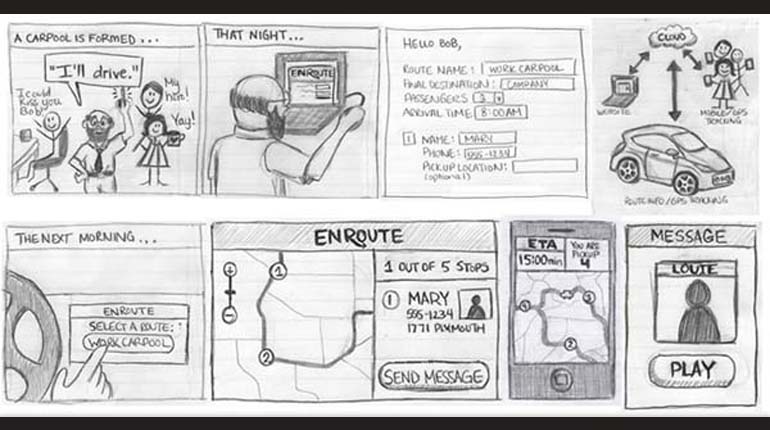 A CARPOOL IS FORMED...
"I'll drive."
I could
kiss you
Bob!
My
hero!
Yay!
THAT NIGHT...
ENROUTE
HELLO BOB,
ROUTE NAME: WORK CARPOOL
FINAL DESTINATION: COMPANY
PASSENGERS 3
ARRIVAL TIME 8:00AM
1 NAME: MARY
PHONE: 555-1234
PICKUP LOCATION:
(optional)
CLOUD
WEBSITE
MOBILE/GPS
TRACKING
ROUTE INFO/GPS TRACKING
THE NEXT MORNING...
ENROUTE
SELECT A ROUTE:
WORK CARPOOL
ENROUTE
1
2
1 OUT OF 5 STOPS
1 MARY
555-1234
1771 PLYMOUTH
SEND MESSAGE
ETA
15:00min
YOU ARE
PICKUP
4
4
3
2
MESSAGE
LOUIE
PLAY